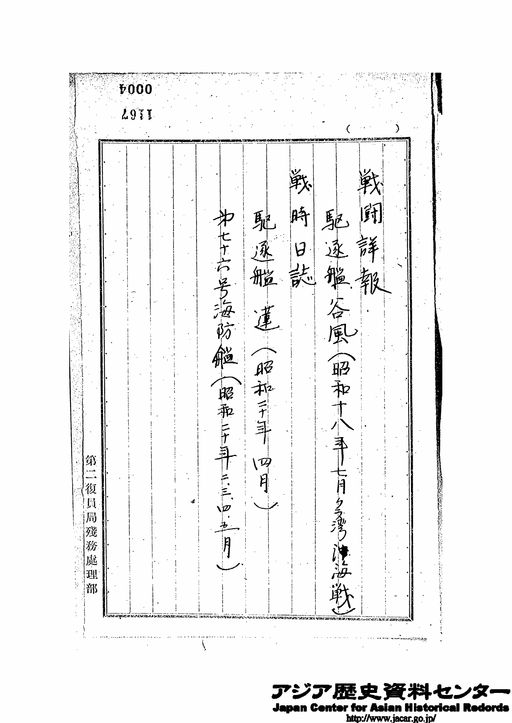 0004
1167
( )
戦闘詳報
駆逐艦谷風(昭和十八年七月クラ湾沖海戦)
戦時日誌
駆逐艦 蓮(昭和二十年 四月)
第七十六号海防艦(昭和二十年二、三、四、五月)
第二復員局殘務處理部
アジア歴史資料センター
Japan Center for Asian Historical Records
http://www.jacar.go.jp/